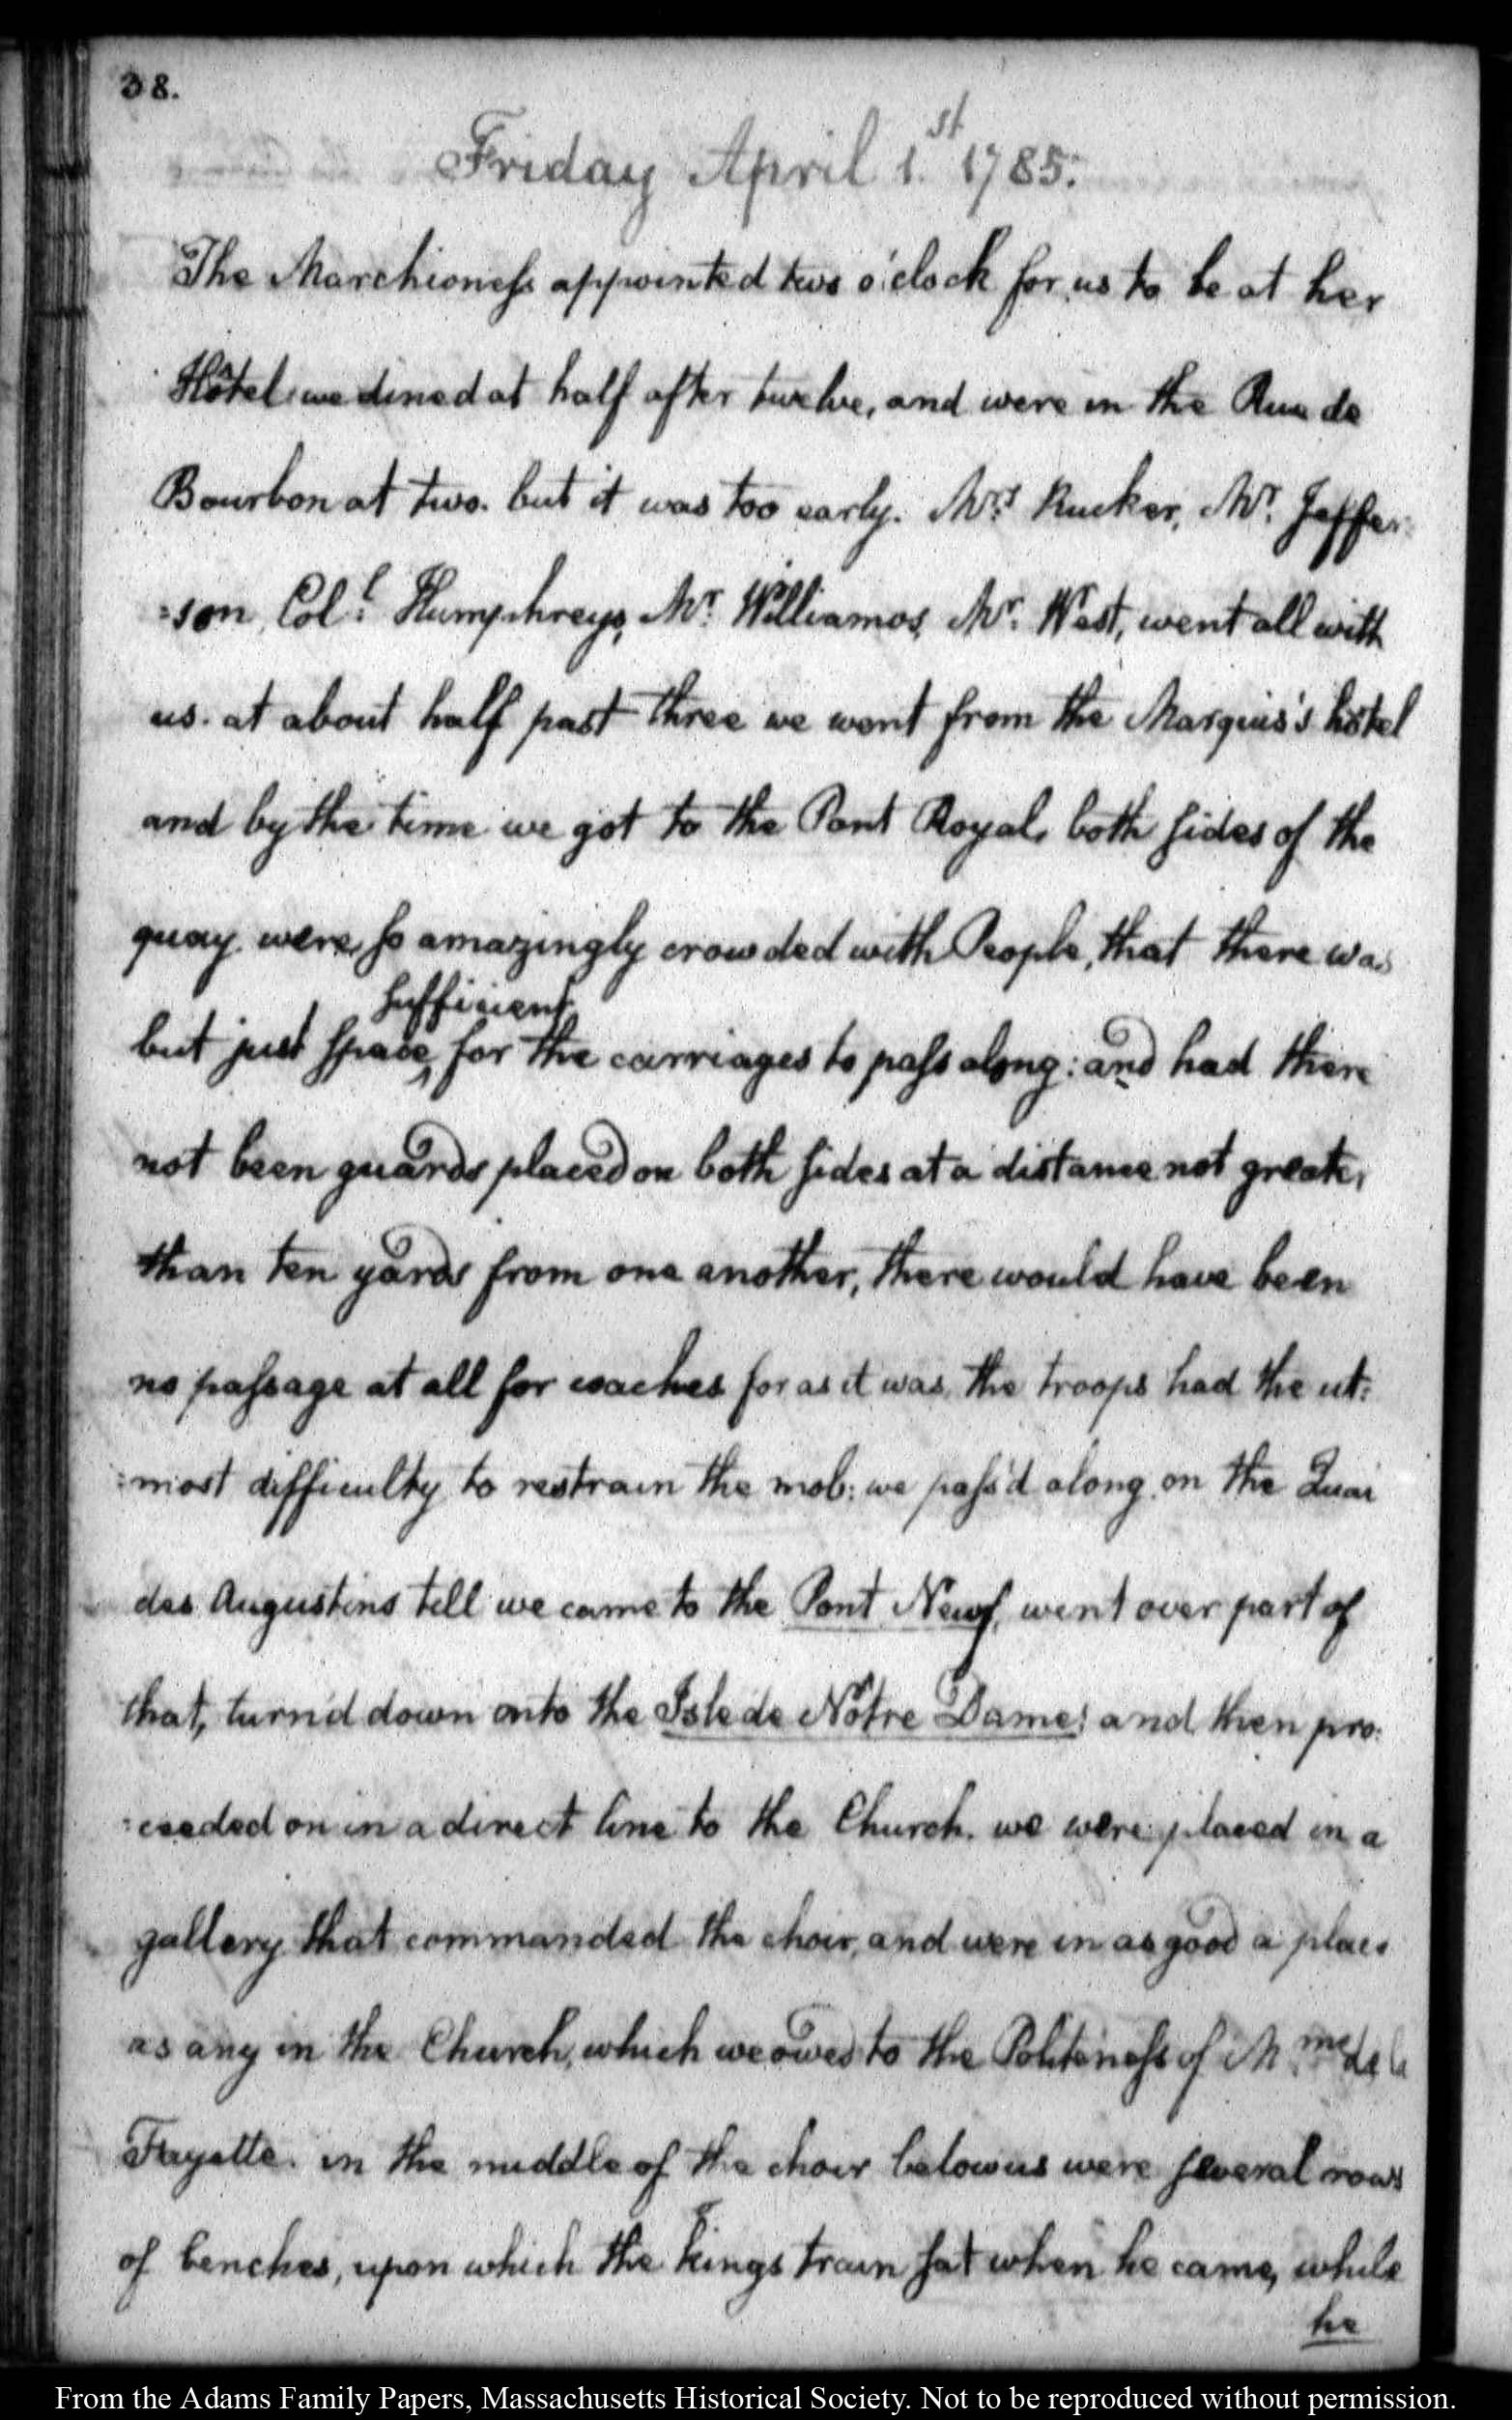 38.
Friday April 1.st 1785.
The Marchioness appointed two o'clock for us to be at her
Hôtel: we dined at half after twelve, and were in the Rue de
Bourbon at two. but it was too early. Mrs. Rucker, Mr. Jeffer:
:son, Coll. Humphreys, Mr. Williamos, Mr. West, went all with
us. at about half past three we went from the Marquis's hôtel
and by the time we got to the Pont Royal, both sides of the
quay were so amazingly crowded with People, that there was
sufficient
but just space, for the carriages to pass along: and had there
not been guards placed on both sides at a distance not greater
than ten yards from one another, there would have been
no passage at all for coaches for as it was, the troops had the ut:
:most difficulty to restrain the mob: we pass'd along on the Quai
des Augustins till we came to the Pont Neuf, went over part of
that, turn'd down onto the Isle de Nôtre Dame; and then pro:
:ceeded on in a direct line to the Church. we were placed in a
gallery that commanded the choir, and were in as good a place
as any in the Church, which we owed to the Politeness of M.me de la
Fayette. in the middle of the choir below us were several rows
of benches, upon which the kings train sat when he came, while
he
From the Adams Family Papers, Massachusetts Historical Society. Not to be reproduced without permission.